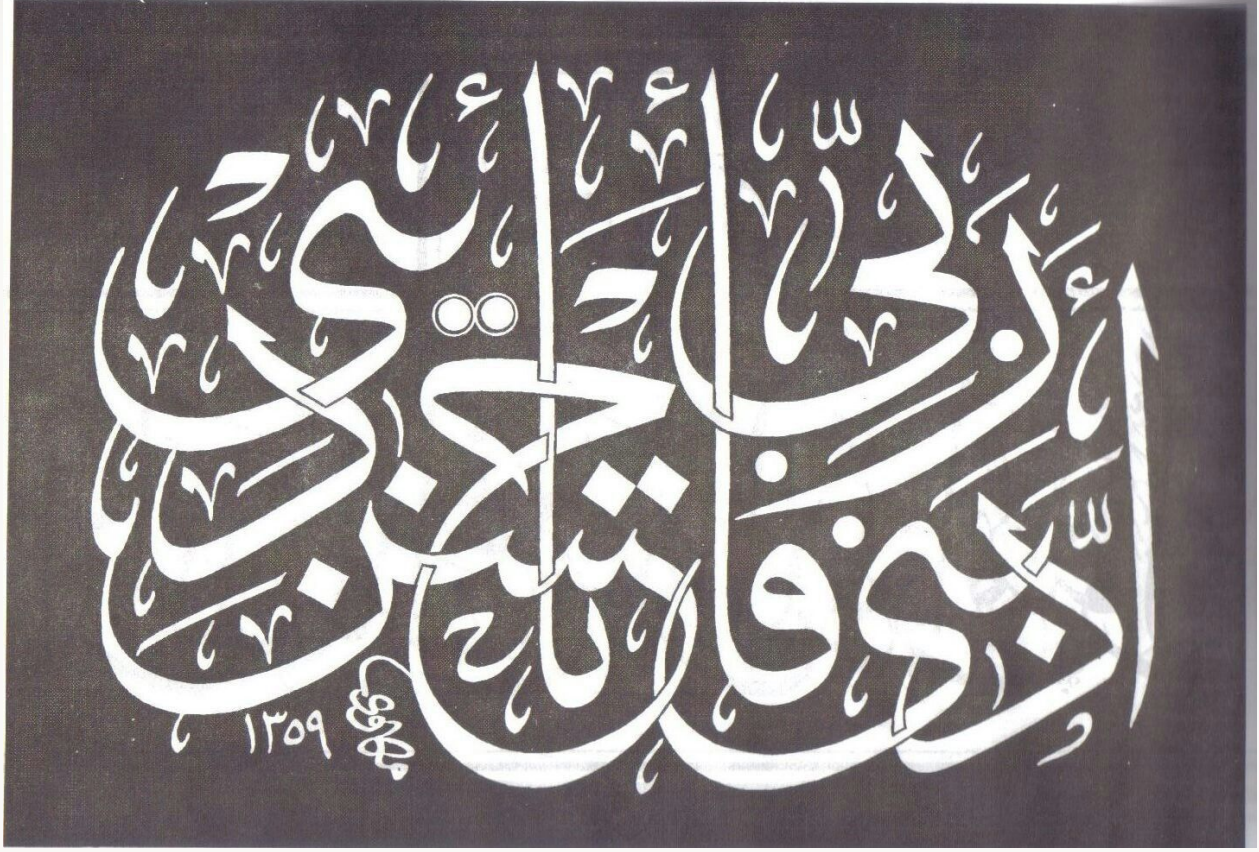 أَدَّبَنِي رَبِّي فَأَحْسَنَ تَأْدِيبِي
١٣٥٩